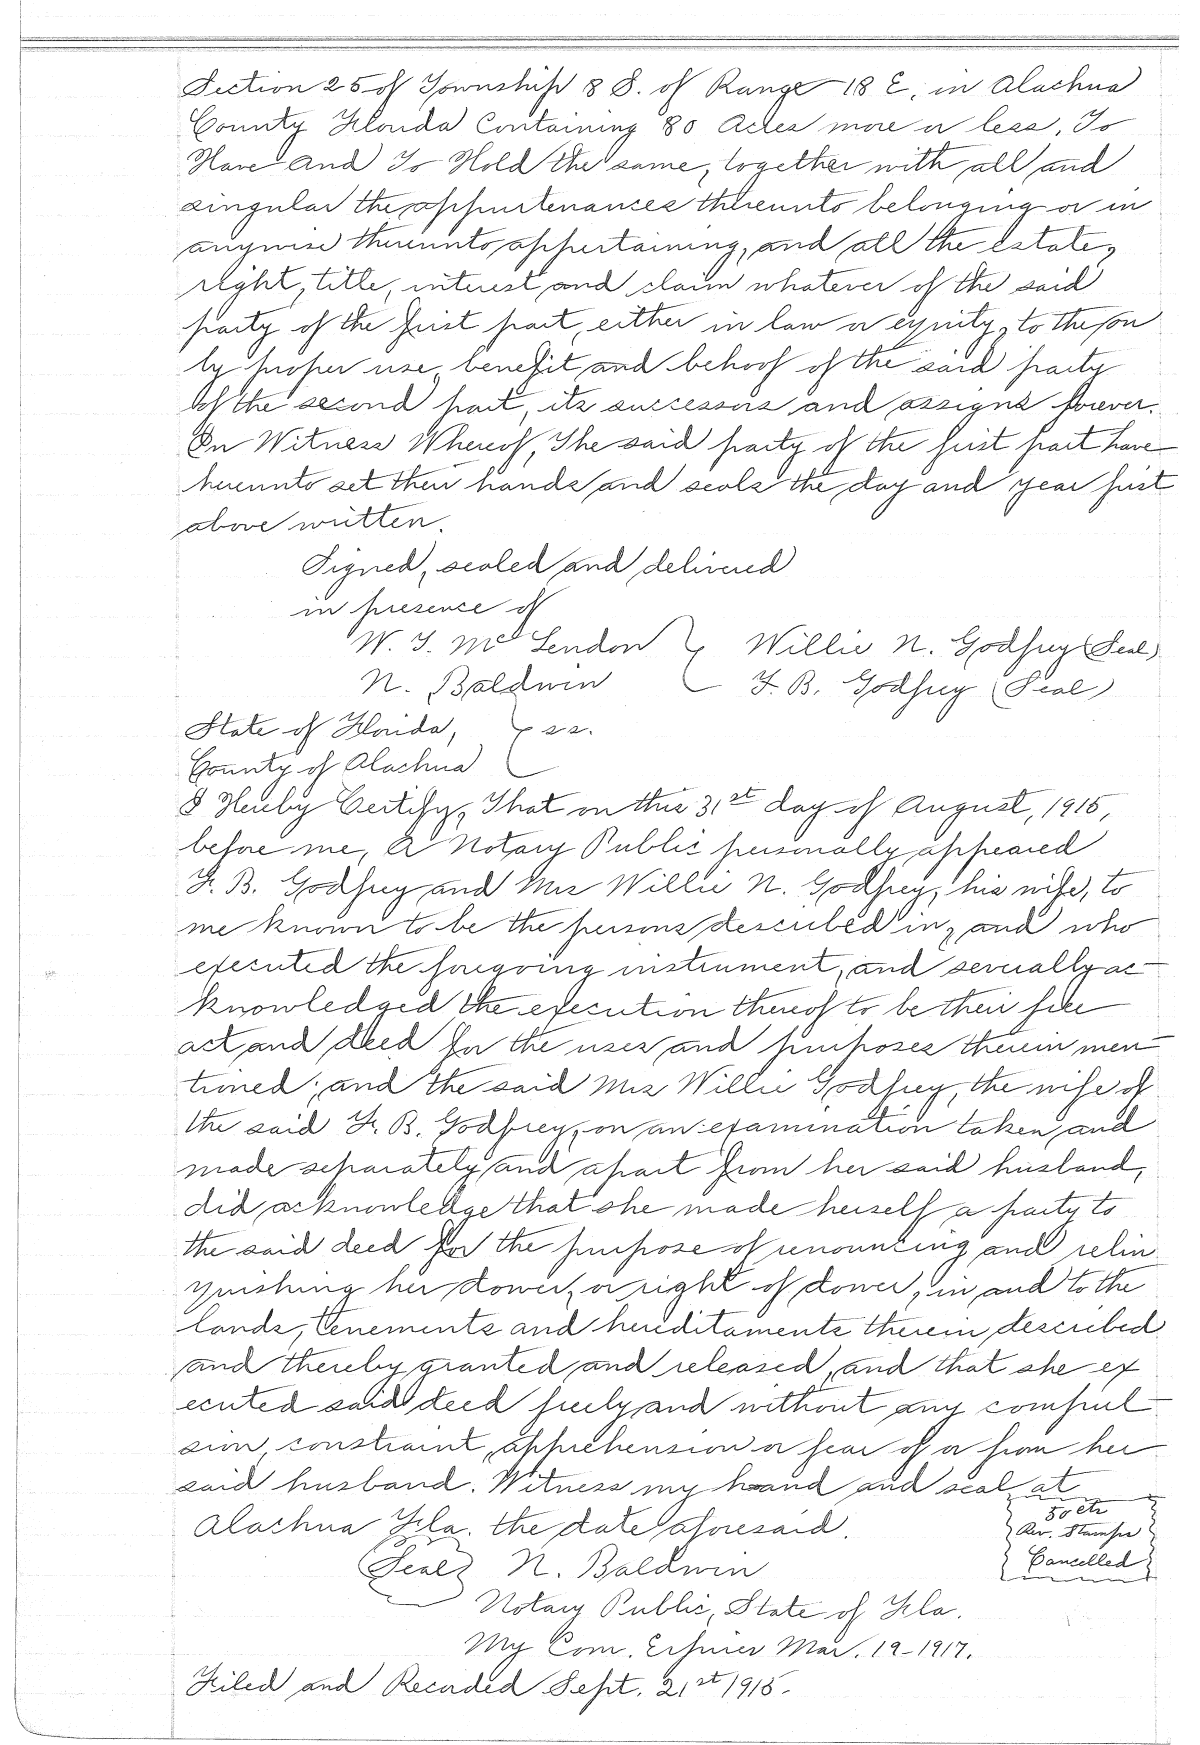 Section 25 of Township 8 S. of Range 18 E, in Alachua
County Florida Containing 80 Acres more or less, To
Have And To Hold the same, together with all and
singular the appurtenances thereunto belonging or in
anywise thereunto appertaining, and all the estate,
right, title, interest and claim whatever of the said
party of the first part, either in law or equity, to the on
ly proper use, benefit and behoof of the said party
of the second part, its successors and assigns forever.
In Witness Whereof, The said party of the first part have
hereunto set their hands and seals the day and year first
above written.
Signed, sealed and delivered
in presence of
W. T. McLendon } Willie N. Godfrey (Seal)
N. Baldwin F. B. Godfrey (Seal)
State of Florida, } ss.
County of Alachua
I Hereby Certify, That on this 31st day of August, 1915,
before me, A Notary Public personally appeared
F. B. Godfrey and Mrs Willie N. Godfrey, his wife, to
me known to be the persons described in, and who
executed the foregoing instrument, and severally ac-
knowledged the execution thereof to be their free
act and deed for the uses and purposes therein men-
tioned; and the said Mrs Willie Godfrey, the wife of
the said F. B. Godfrey, on an examination taken and
made separately and apart from her said husband,
did acknowledge that she made herself a party to
the said deed for the purpose of renouncing and relin
quishing her dower, or right of dower, in and to the
lands, tenements and hereditaments therein described
and thereby granted and released, and that she ex
ecuted said deed freely and without any compul-
sion, constraint, apprehension or fear of or from her
said husband. Witness my hand and seal at
Alachua Fla. the date aforesaid.
50 cts
Rev. Stamps
Cancelled
(Seal) N. Baldwin
Notary Public, State of Fla.
My Com. Expires Mar. 19-1917.
Filed and Recorded Sept. 21st 1915.